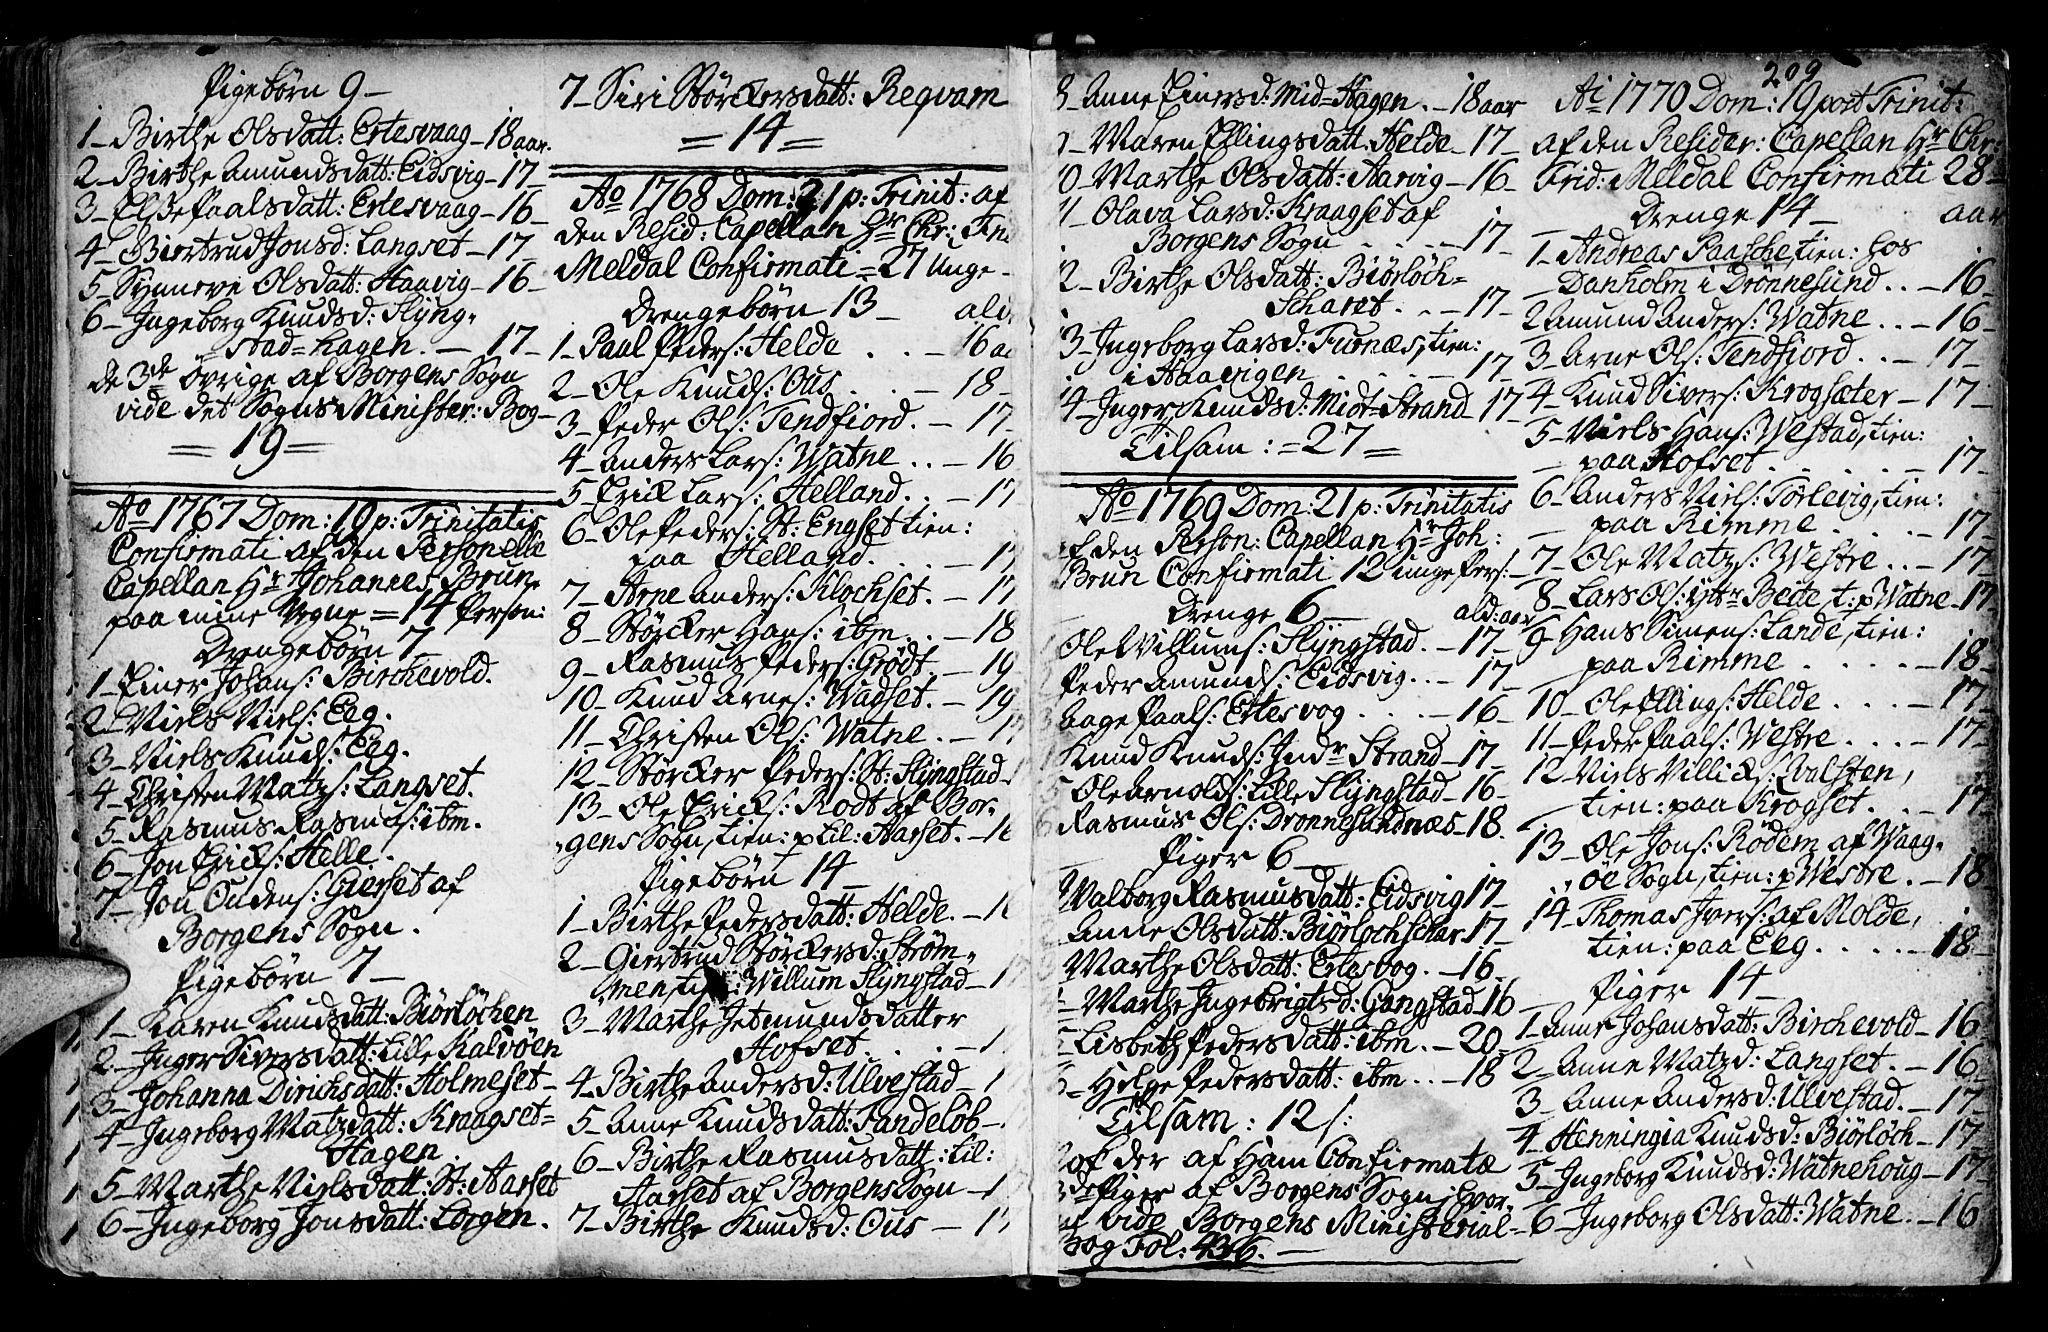 Pigebörn 9_
1_ Birthe Olsdatt: Ertesvaag_ 18 aar.
2_ Birthe Amundsdatt: Eidsvig_ 17_
3_ Elsse Paalsdatt: Ertesvaag_ 16_
4_ Giertrud Jonsd: Langset_ 17_
5_ Synneve Olsdatt: Haavig_ 16_
6_ Ingeborg Knudsd: Slyng=
stad=hagen. _ 17_
de 3de övrige af Borgens Sogn
vide det Sogns Minister: Bog_
= 19 =
Ao 1767 Dom: 19 p: Trinitatis
Confirmati af den Personelle
Capellan Hr Johannes Brun
paa mine Vegne = 14 Person:
Drengebörn 7_
1_ Einer Johans: Birchevold.
2_ Niels Niels: Eeg.
3_ Niels Knuds: Eeg.
4_ Christen Matzs: Langset.
5_ Rasmus Rasmus: ibm.
6_ Jon Ericks: Helle.
7_ Jon Oudens: Gierset af
Borgens Sogn.
Pigebörn 7_
1_ Karen Knudsdatt: Biörlöchen
2_ Inger Siversdatt: Lille Kalvöen
3_ Johanna Dirichsdatt: Holmeset_
4_ Ingeborg Matzdatt: Kraagset=
Hagen.
5_ Marthe Nielsdatt: St: Aarset
6_ Ingeborg Jonsdatt: Lorgen.
7_ Siri Störckersdatt: Reqvam
= 14 =
Ao 1768 Dom: 21 p: Trinit: af
den Resid: Capellan Hr Chr:
Meldal Confirmati = 27 Unge_
Drengebörn 13_ ald:
1_ Paal Peders: Helde . . _ 16
2_ Ole Knuds: Ous . . . _ 18_
3_ Peder Ols: Tendfiord. _ 17_
4_ Anders Lars: Watne . . _ 16
5_ Erick Lars: Helland. . _ 17
6_ Ole Peders: St: Engset tien:
paa Helland. . . . _ 17
7_ Arne Anders: Klochset. _ 17
8_ Störcker Hans: ibm. . _ 18
9_ Rasmus Peders: Grödt _ 19
10_ Knud Arnes: Wadset. _ 19
11_ Christen Ols: Watne. _
12_ Störcker Peders: St: Slyngstad_
13_ Ole Ericks: Rödt af Bor=
gens Sogn, tien: p Lil: Aarset. _
Pigebörn 14_
1_ Birthe Pedersdatt: Helde. _
2_ Giertrud Störckersd: Ström=
Willum Slyngstad_
3_ Marthe Jetmundsdatter
Hofset . . . . _
4_ Birthe Andersd: Ulvestad_
5_ Anne Knudsdatt: Sandelöb_
6_ Birthe Rasmusdatt: Lil:
Aarset af Borgens Sogn_
7_ Birthe Knudsd: Ous _ 17
8_ Anne Einersd: Mid=Hagen. _ 18 aar
Maren Ellingsdatt: Helde_ 17_
10_ Marthe Olsdatt: Aarvig_ 16_
11_ Olava Larsd: Kraagset af
Borgens Sogn . . . _ 17_
12_ Birthe Olsdatt: Biörlöch=
Scharet . . _ 17_
13_ Ingeborg Larsd: Furnæs, tien:
i Haavigen . . . _ 17_
14_ Inger Knudsd: Midt=Strand 17_
Tilsam: = 27 =
Ao 1769 Dom: 21 p: Trinitatis
af den Person: Capellan Hr Joh:
Brun Confirmati 12 unge Pers:
Drenge 6_ ald: aar
Ole Willums: Slyngstad. _ 17_
Peder Amunds: Eidsvig. . _ 17_
Aage Paals: Ertesvog . . . _ 16_
Knud Knuds: Indr Strand_ 17_
Ole Arnolds: Lille Slyngstad_ 16_
Rasmus Ols: Dronnesundnæs_ 18.
Piger 6_
Walborg Rasmusdatt: Eidsvig 17_
Anne Olsdatt: Biörlochschar 17_
Marthe Olsdatt: Ertesvog. _ 16_
Marthe Ingebrigtsd: Gangstad_ 16
Lisbeth Pedersdatt: ibm. _ 20_
Helge Pedersdatt: ibm. . _ 18
Tilsam: 12 /:
of der af Ham Confirmatæ
Piger af Borgens Sogn, hvor=
af vide Borgens Ministerial_
Bog Fol: 436. _
209
Ao 1770 Dom: 19 post Trinit:
af den Resider: Capellan Hr Chr:
Frid: Meldal Confirmati 28_
Drenge 14_ aar
1_ Andreas Paasche, tien: hos
Danholm i Drönnesund . . _ 16_
2 Amund Anders: Watne. . _ 16_
3_ Arne Ols: Tendfiord . . _ 17_
4_ Knud Sivers: Krogsæter_ 17_
5_ Niels Hans: Westad, tien:
_ paa Hofset . . . . _ 17_
6_ Anders Niels: Törlevig, tien:
_ paa Rimme . . . . _ 17_
7_ Ole Matzs: Westre . . _ 17_
8_ Lars Ols: ytr Beite t: p Watne_ 17_
9_ Hans Simens: Lande, tien:
paa Rimme . . . . _ 18_
10_ Ole Ellings: Helde . . . _ 17_
11_ Peder Paals: Westre . . . _ 17_
12_ Niels Villicks: Qvalsten,
tien: paa Krogset. . . _ 17_
13_ Ole Jons: Rödem af Waag=
öe Sogn, tien: p Westre. _ 18_
14_ Thomas Ivers: af Molde,
tien: paa Eeg . . . . _ 18_
Piger 14_
1_ Anne Johansdatt: Birchevold_ 16
2_ Anne Matzd: Langset. _ 16_
3_ Anne Andersd: Ulvestad. _ 17_
4_ Henningia Knudsd: Biörlöch_ 17_
5_ Ingeborg Knudsd: Watnehoug_ 17_
6_ Ingeborg Olsdatt: Watne. _ 16